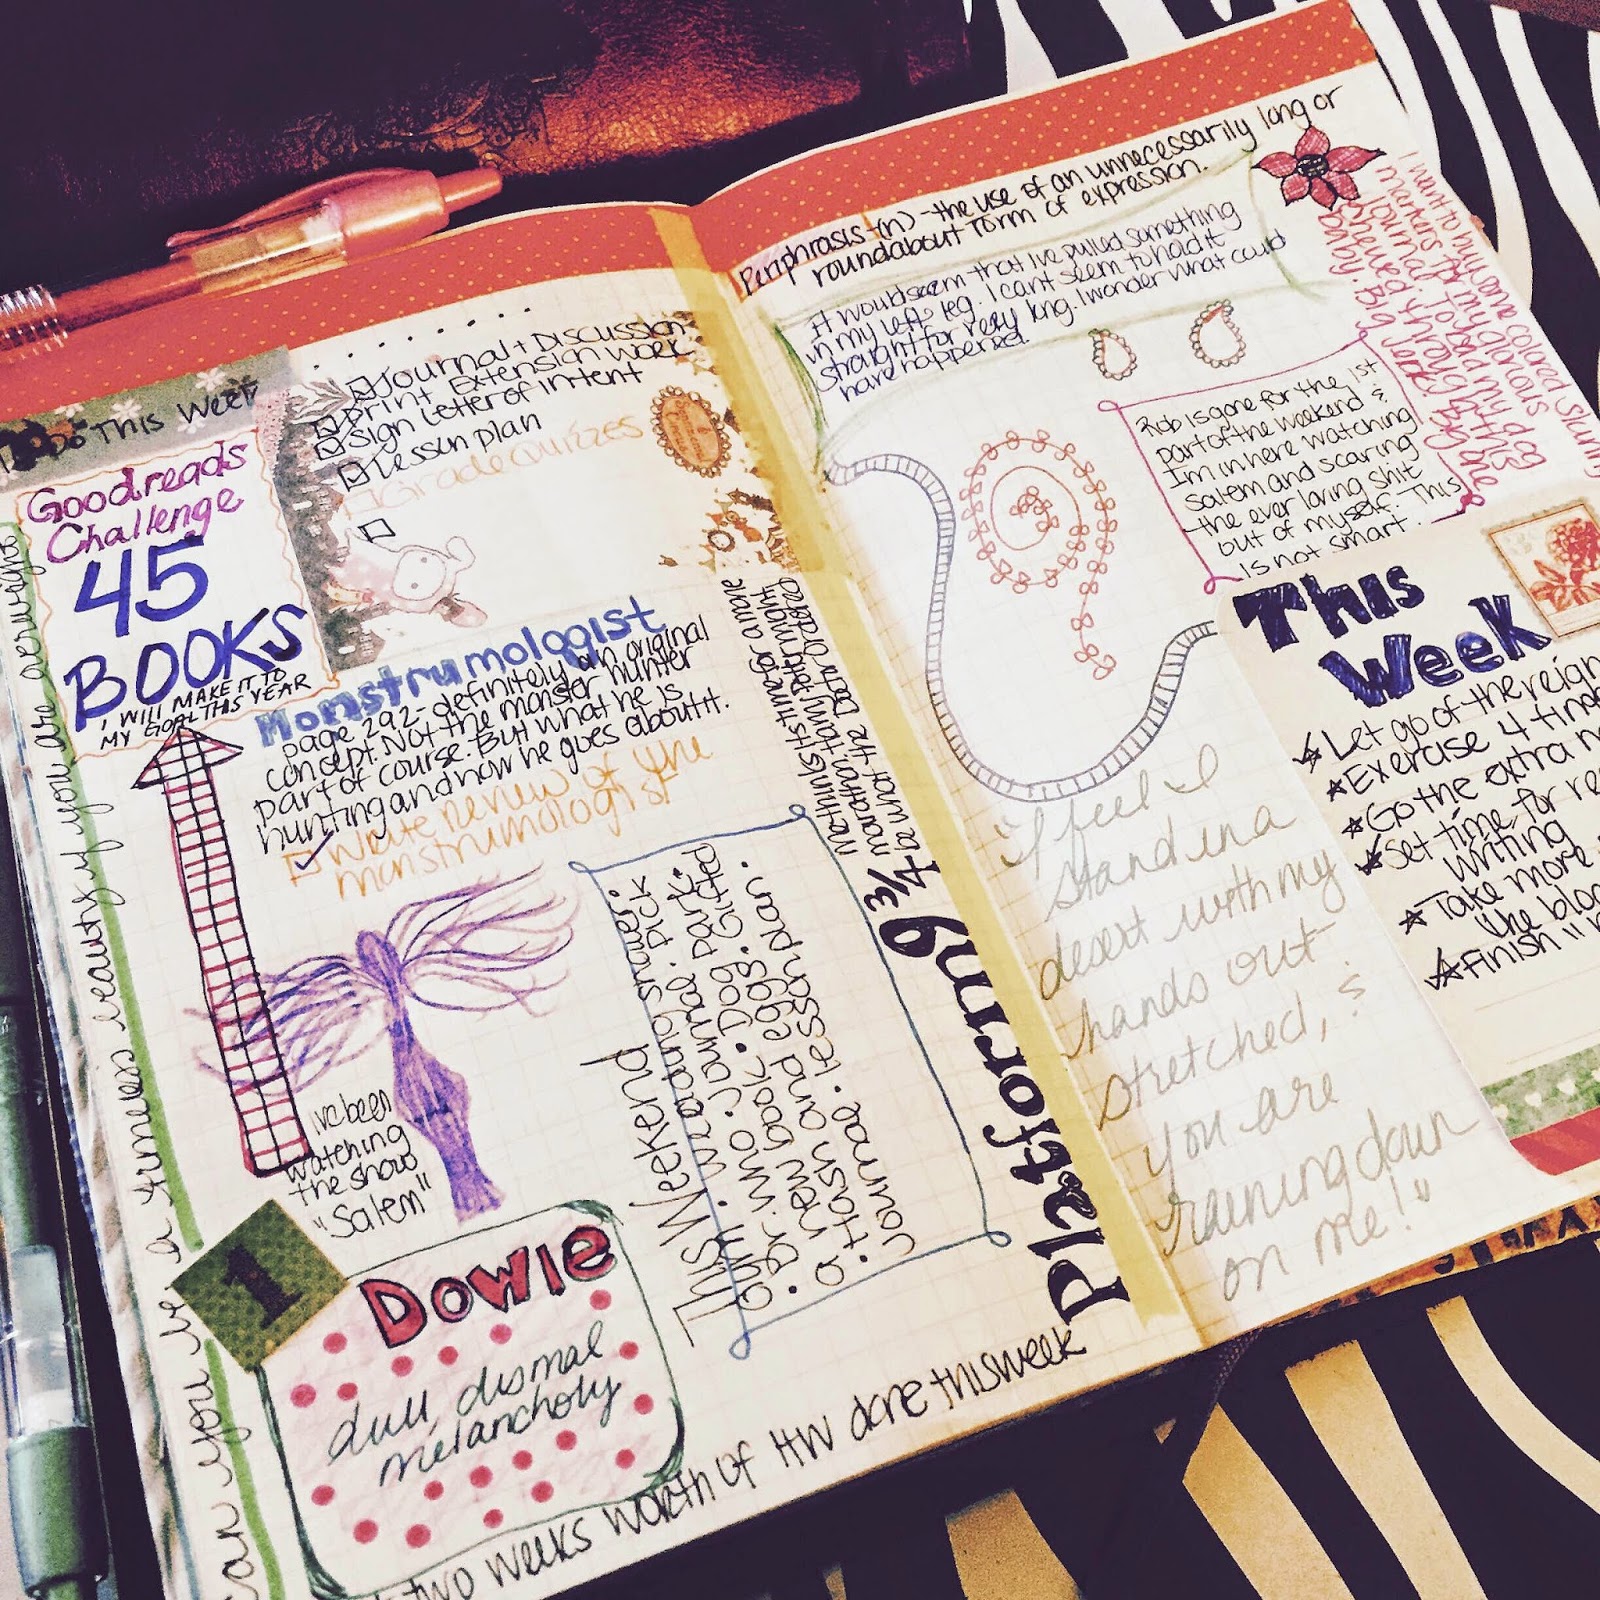 Do This Week
Journal + Discussion
Print Extension work
Sign Letter of Intent
Lesson plan
Grade Quizzes
Goodreads
Challenge
45
BOOKS
I WILL MAKE IT TO
MY GOAL THIS YEAR
Monstrumologist
page 292 - definitely an original
concept. Not the monster hunter
part of course. But what he is
hunting and how he goes about it.
Write review of the
monstrumologist
can you be a fitness beauty if you are overweight
I've been
watching
the show
"Salem"
1
Dowie
dull, dismal
melancholy
two weeks worth of HW done this week
This Weekend
Gym. Wedding shower. pick
. Dr. Who Journal. Dog park.
a new book.
. Hash and eggs. Gifted
Journal. lesson plan.
methinks its time for a movie
marathon, tomy, Peter might
be what the Doctor ordered
Platform 9 3/4
Periphrasis (n) - the use of an unnecessarily long or
roundabout form of expression.
It would seem that I've pulled something
in my left leg. I cant seem to hold it
straight for very long. I wonder what could
have happened.
I want to buy some colored Sharpie
markers for my glorious
journal. Today my dog
chewed through this
baby. Big leak. Big one
Rob is gone for the 1st
part of the weekend &
I'm in here watching
Salem and scaring
the ever loving shit
out of myself. This
is not smart.
This
Week
Let go of the reign
Exercise 4 times
Go the extra
Set time for
writing
Take more
the
Finish "
"I feel I
stand in a
desert with my
hands out
stretched, &
you are
raining down
on me!"